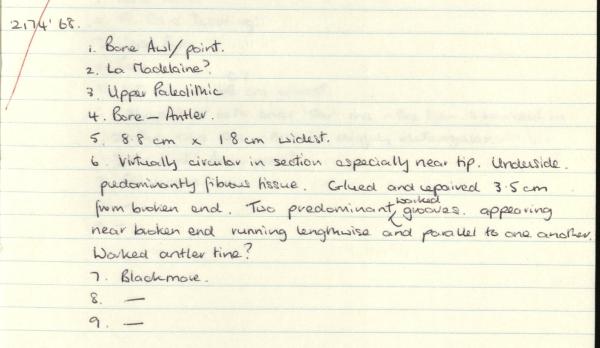 2,174'68.
1. Bone Awl/point.
2. La Madelaine?
3. Upper Paleolithic
4. Bone – Antler.
5. 8.8 cm x 1.8 cm widest.
6. Virtually circular in section especially near tip. Underside.
predominantly fibrous tissue. Glued and repaired 3.5 cm
from broken end. Two predominant worked grooves. appearing
near broken end running lengthwise and parallel to one another.
Worked antler tine?
7. Blackmore.
8. —
9. —